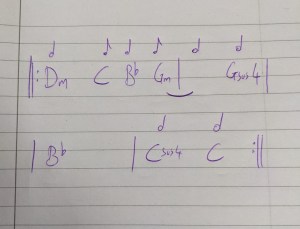 𝅗𝅥 ♪ 𝅗𝅥 ♪ 𝅗𝅥 𝅗𝅥
||: Dm C Bb Gm | Gsus4 |
𝅗𝅥 𝅗𝅥
| Bb | Csus4 C :||